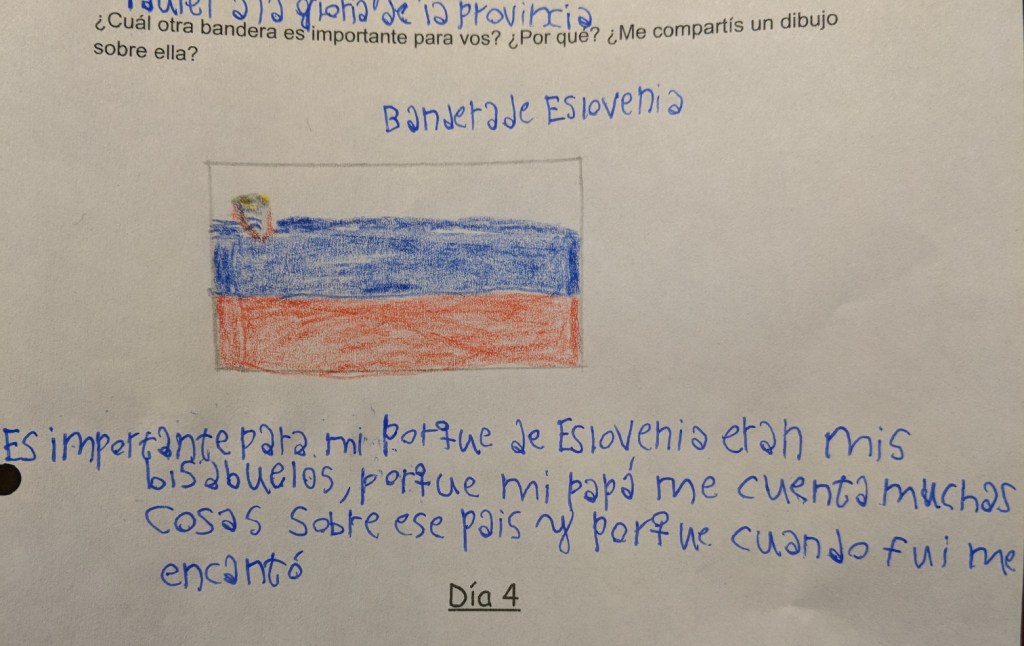 a la gloria de la provincia
¿Cuál otra bandera es importante para vos? ¿Por qué? ¿Me compartís un dibujo
sobre ella?
Bandera de Eslovenia
Es importante para mi porque de Eslovenia eran mis
bisabuelos, porque mi papá me cuenta muchas
cosas sobre ese pais y porque cuando fui me
encantó
Día 4